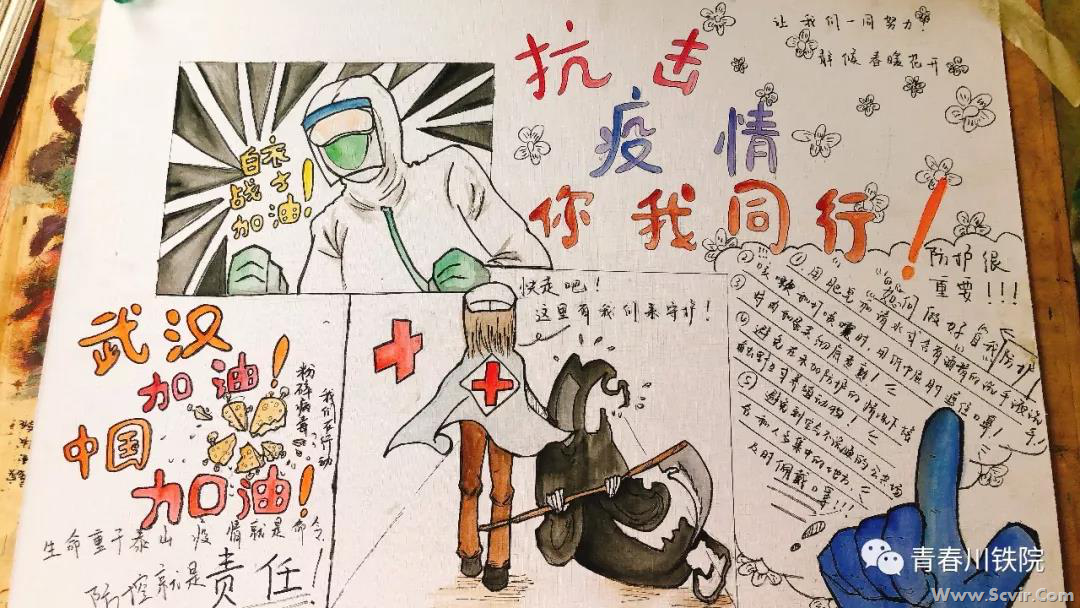 让我们一同努力!
静候春暖花开
抗击
疫情
你我同行!
白衣
战士
加油!
防护很
重要!!!
快走吧!
这里有我们来守护!
武汉
加油!
中国
加油!
我们在行动
粉碎病毒
生命重于泰山 疫情就是命令
防控就是责任!
如何做好自我防护
① 用肥皂和清水或含有酒精的洗手液洗手!
② 咳嗽和打喷嚏时用纸巾或屈肘遮住口鼻!
④ 避免在未加防护的情况下接
触野生或养殖动物!
⑤ 避免到空气不流通的公共场
及时佩戴口罩!!
青春川铁院
Www.Scvir.Com